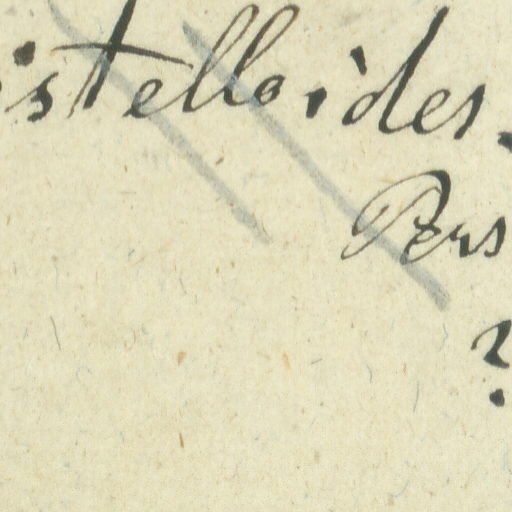 istelloides.
Pers
?